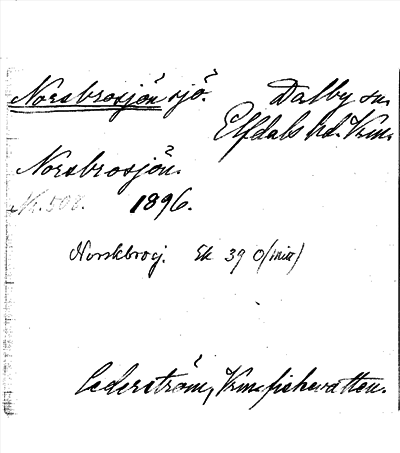 Norsbrosjön sjö. Dalby sn.
Elfdals hd. Vrm.
Norsbrosjön.
Nr. 508. 1896.
Norskbroj. Ek 39 O (mitt)
Cederström, Vrm fiskevatten.